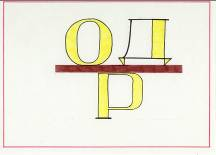 ОД
Р